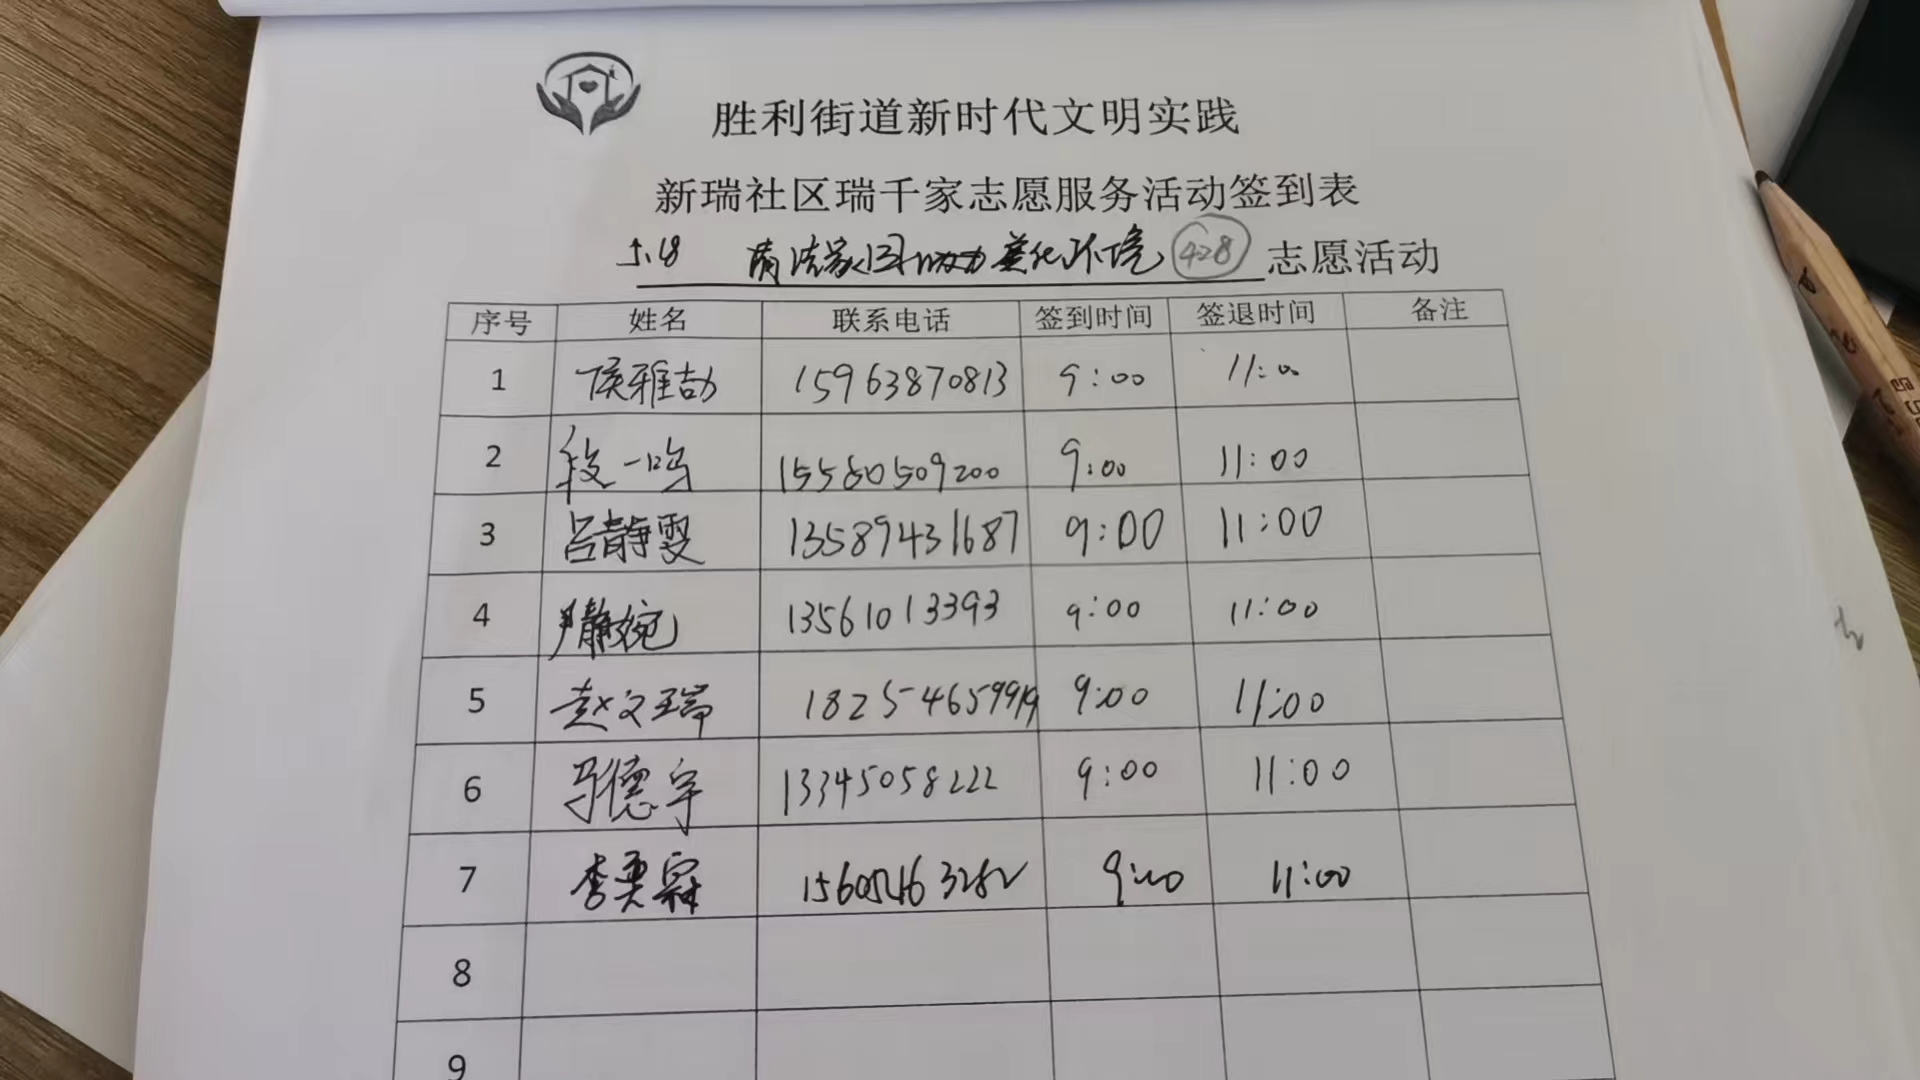 胜利街道新时代文明实践
新瑞社区瑞千家志愿服务活动签到表
5.18 清洁家园 美化环境 428 志愿活动
序号 姓名 联系电话 签到时间 签退时间 备注
1 侯雅喆 15963870813 9:00 11:00
2 段一鸣 15580509200 9:00 11:00
3 吕静雯 13589431687 9:00 11:00
4 尹静婉 13561013393 9:00 11:00
5 赵文瑞 9:00 11:00
6 马德宇 13345058222 9:00 11:00
7 李奕霖 9:00 11:00
8
9